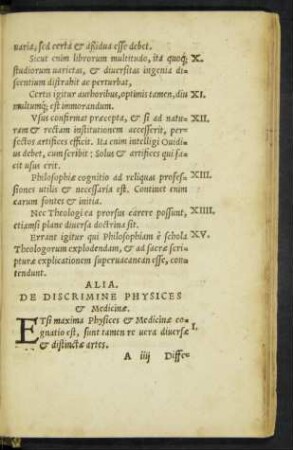 uaria, sed certa & aſsidua eſſe debet.
Sicut enim librorum multitudo, ita quoq; X.
ſtudiorum uarietas, & diuerſitas ingenia di-
ſcentium diſtrahit ac perturbat,
Certis igitur authoribus, optimis tamen, diu XI.
multumq; eſt immorandum.
Vſus confirmat præcepta, & ſi ad natu- XII.
ram & rectam inſtitutionem acceſſerit, per-
fectos artifices efficit. Ita enim intelligi Ouidi-
us debet, cum ſcribit: Solus & artifices qui fa-
cit uſus erit.
Philoſophiæ cognitio ad reliquas profeſ- XIII.
ſiones utilis & neceſſaria eſt. Continet enim
earum fontes & initia.
Nec Theologi ea prorſus carere poſſunt, XIIII.
etiamſi plane diuerſa doctrina ſit.
Errant igitur qui Philoſophiam è ſchola XV.
Theologorum explodendam, & ad ſacræ ſcri-
pturæ explicationem ſuperuacanean eſſe, con-
tendunt.
ALIA.
DE DISCRIMINE PHYSICES
& Medicinæ.
ETſi maxima Phyſices & Medicinæ co-
gnatio eſt, ſunt tamen re uera diuerſæ I.
& diſtinctæ artes.
A iiij Diffe-